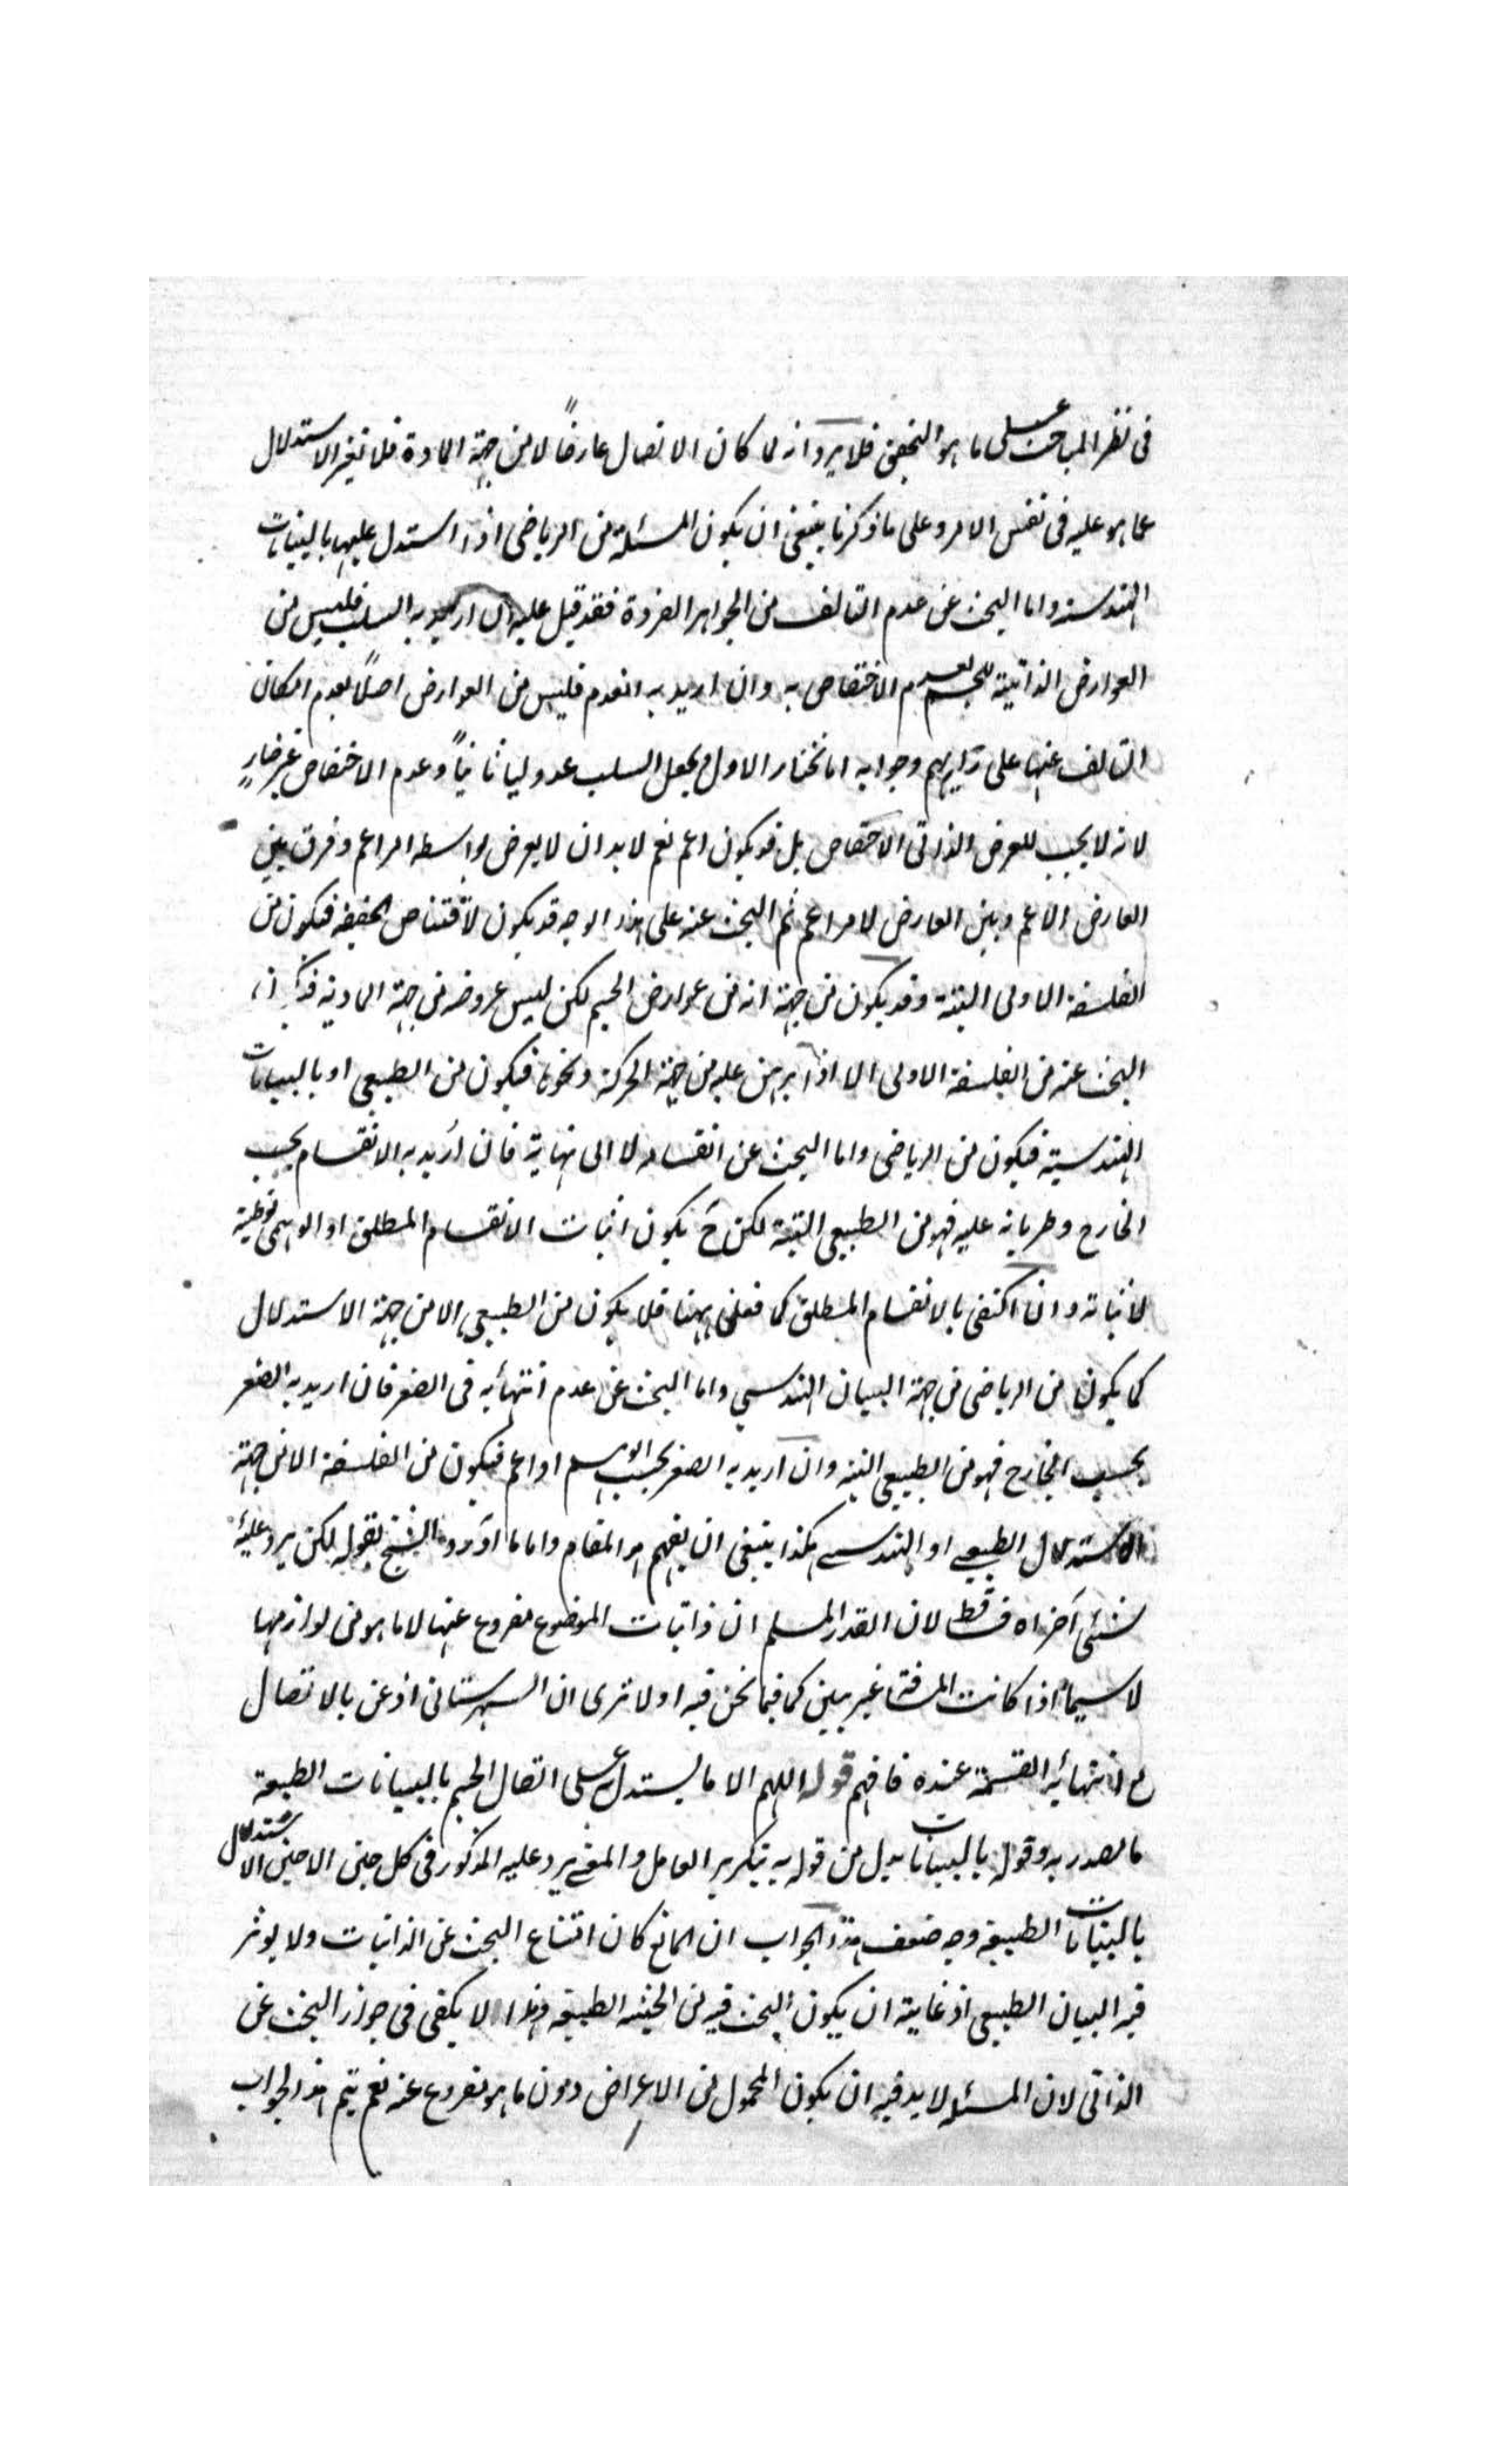 فى نظر المباحث على ما هو التحقيق فلا يرد انه لما كان الاتصال عارضاً لا من جهة المادة فلا تغير الاستدلال
عما هو عليه فى نفس الامر وعلى ما ذكرنا ينبغى ان يكون المسئلة من الرياضى اذا استدل عليها بالبينات
الهندسية واما البحث عن عدم التالف من الجواهر الفردة فقد قيل عليه ان اريد به السلب فليس من
العوارض الذاتية للجسم لعدم الاختصاص به وان اريد به العدم فليس من العوارض اصلاً لعدم امكان
التالف عنها على رأيهم وجوابه انا نختار الاول ونجعل السلب عدوليا ثانياً وعدم الاختصاص غير ضار
لانه لا يجب للعرض الذاتى الاختصاص بل قد يكون اعم نعم لا بد ان لا يعرض بواسطة امر اعم وفرق بين
العارض الاعم وبين العارض لامر اعم ثم البحث عنه على هذا الوجه قد يكون لاقتناص الحقيقة فيكون من
الفلسفة الاولى البتة وقد يكون من جهة انه من عوارض الجسم لكن ليس عروضه من جهة المادية
البحث عنه من الفلسفة الاولى الا اذا برهن عليه من جهة الحركة ونحوها فيكون من الطبيعى او بالبيانات
الهندسية فيكون من الرياضى واما البحث عن انقسامه لا الى نهاية فان اريد به الانقسام بحسب
الخارج وطريانه عليه فهو من الطبيعى البتة لكن ح يكون اثبات الانقسام المطلق او الوهمى توطية
لاثباته وان اكتفى بالانقسام المطلق كما فعلى ههنا فلا يكون من الطبيعى الا من جهة الاستدلال
كما يكون من الرياضى من جهة البيان الهندسى واما البحث عن عدم انتهائه فى الصغر فان اريد به الصغر
بحسب الخارج فهو من الطبيعى البتة وان اريد به الصغر بحسب الوهم او اعم فيكون من الفلسفة الا من جهة
الاستدلال الطبيعى او الهندسى هكذا ينبغى ان يفهم المقام واما ما اورده الشيخ بقوله لكن يرد عليه
شئى آخر اه فساقط لان القدر المسلم ان ذاتيات الموضوع مفروع عنها لا ما هو من لوازمها
لا سيما اذا كانت المسافة غير بين كما فيما نحن فيه او لا ترى ان الشهرستانى اذعن بالاتصال
مع انتهائه القسمة عنده فافهم قوله اللهم الا ما يستدل على اتصال الجسم بالبيانات الطبيعة
ما مصدرية وقوله بالبيانات بدل من قوله به بتكرير العامل والمعنى يرد عليه المذكور فى كل حين الا حين الاستدلال
بالبينات الطبيعية وجه ضعف هذا الجواب ان المانع كان امتناع البحث عن الذاتيات ولا يوثر
فيه البيان الطبيعى اذ غايته ان يكون البحث فيه من الحيثية الطبيعية وهذا لا يكفى فى جواز البحث عن
الذاتى لان المسئلة لا بد فيه ان يكون المحمول من الاعراض دون ما هو مفروع عنه نعم يتم هذا الجواب